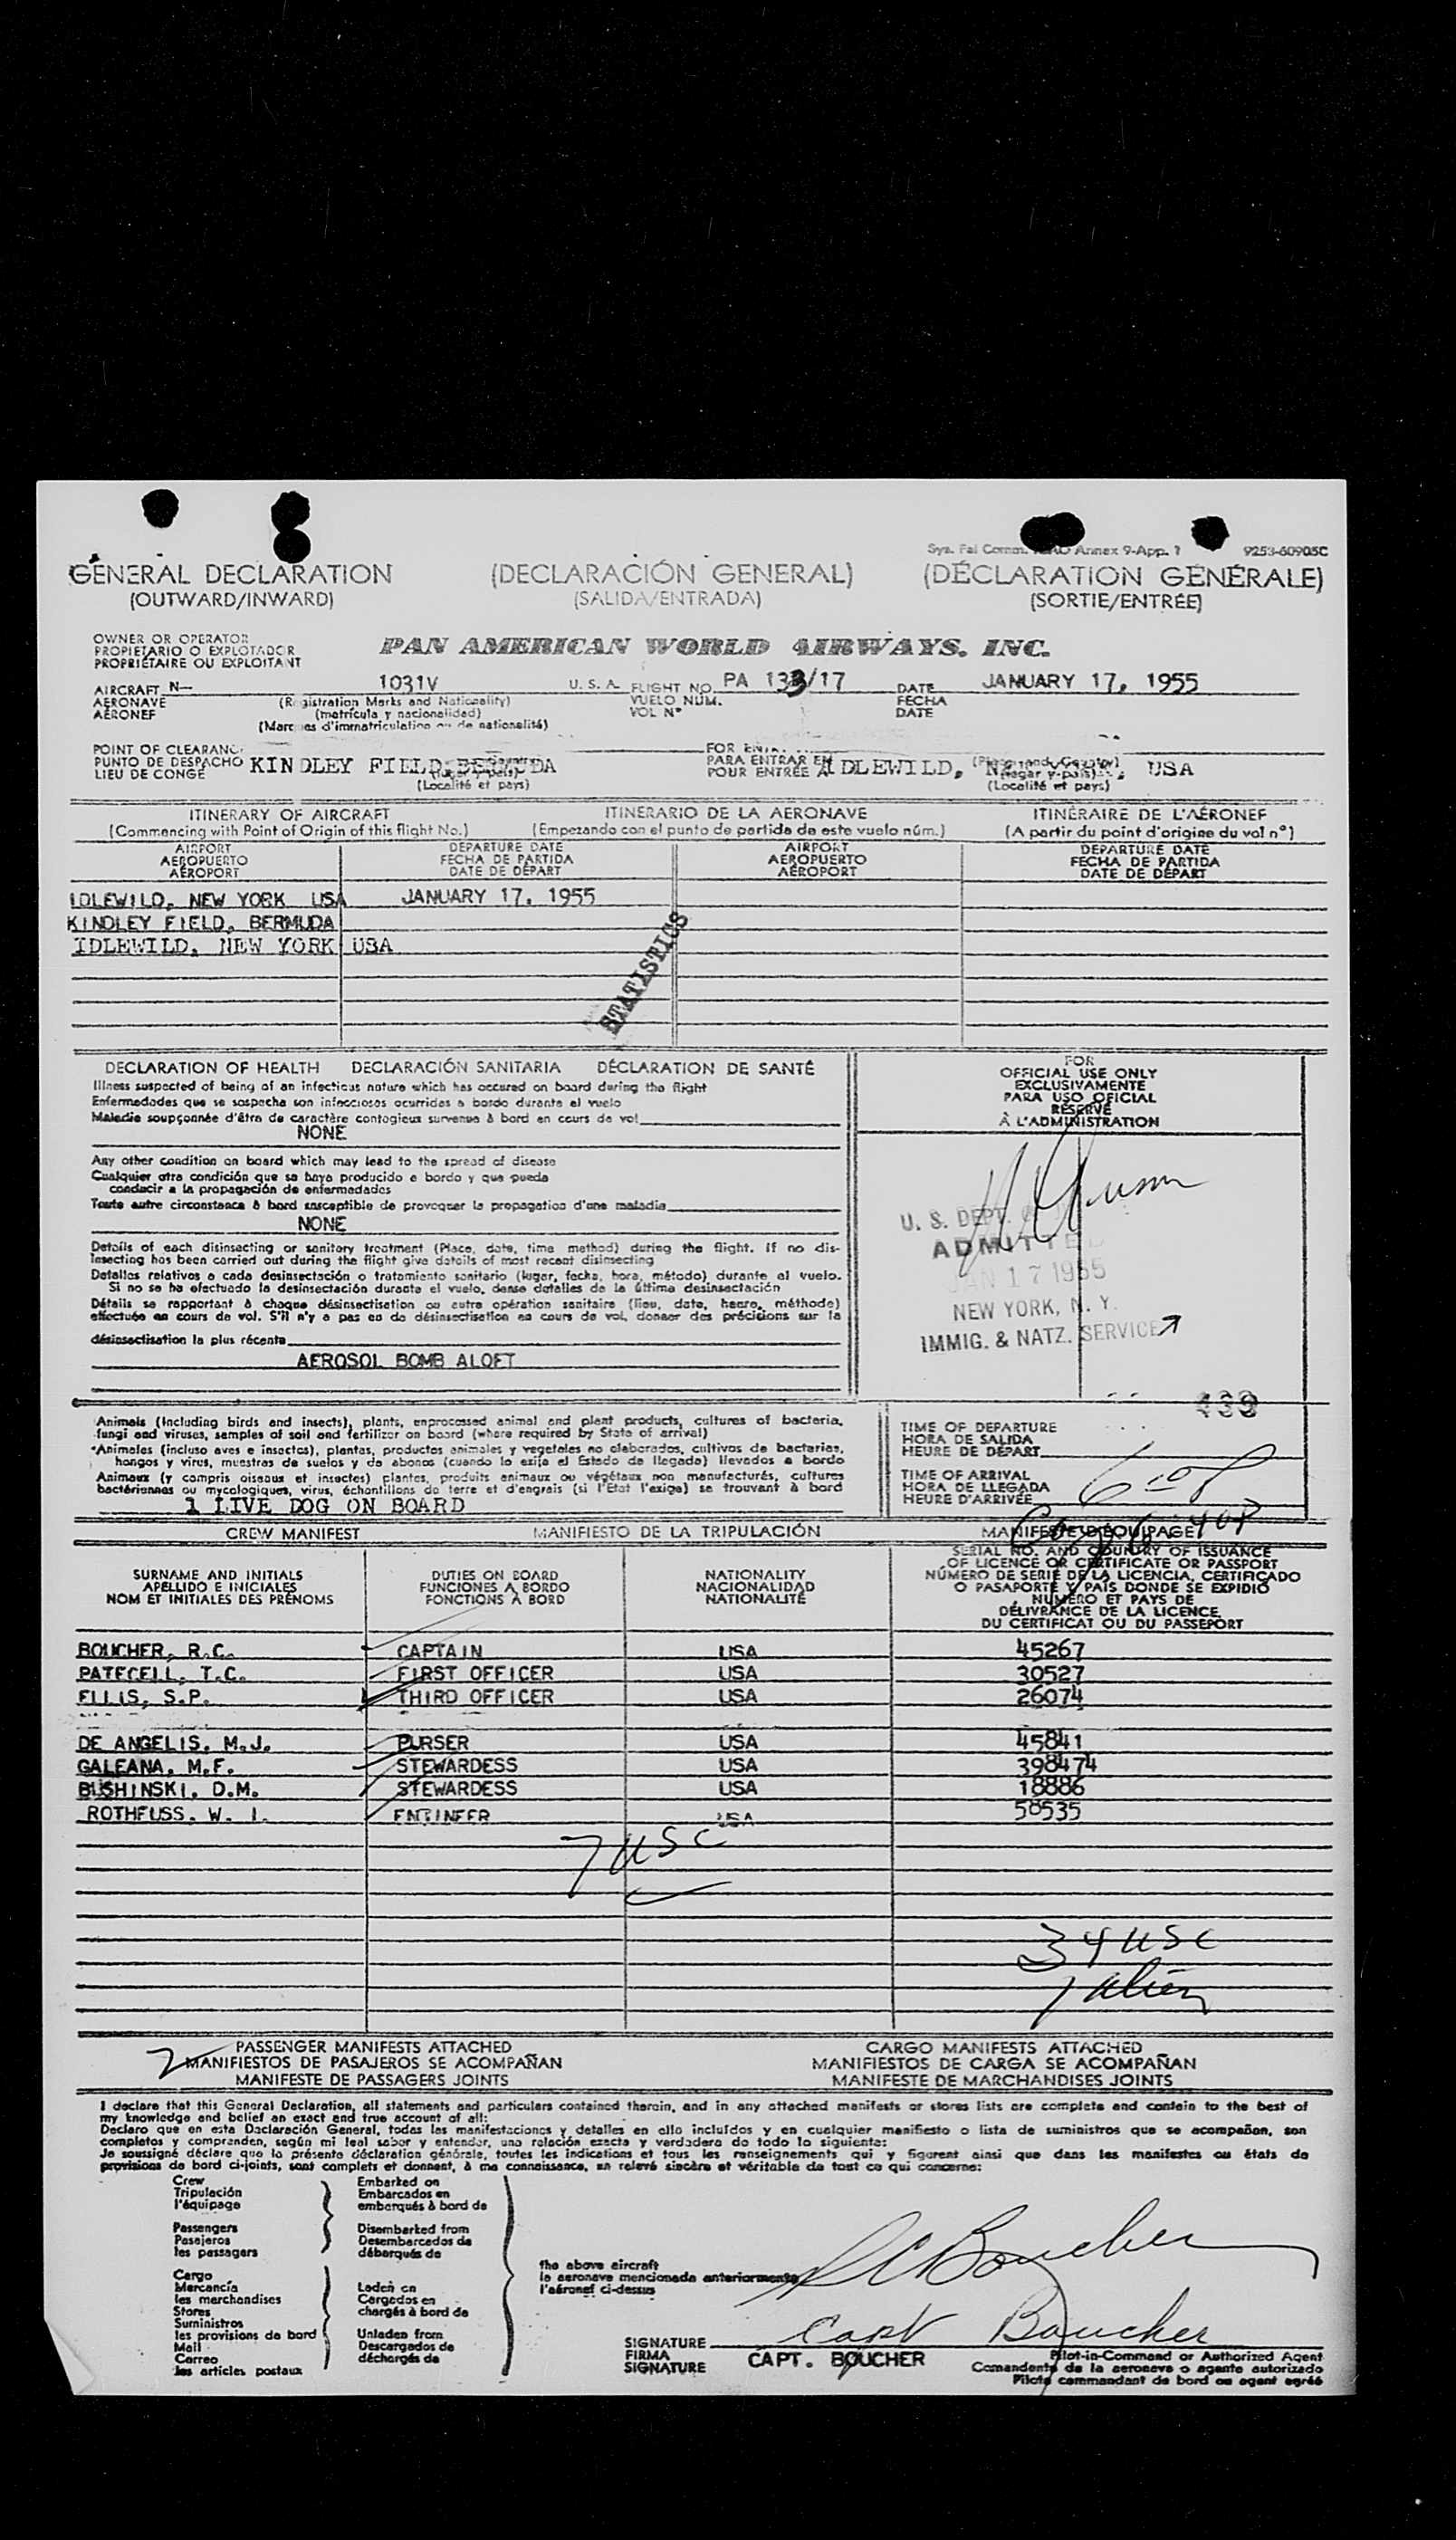 Sys. Fal Comm. Annex 9-App. 1 9253-60905C
GENERAL DECLARATION (DECLARACIÓN GENERAL) (DÉCLARATION GÉNÉRALE)
(OUTWARD/INWARD) (SALIDA/ENTRADA) (SORTIE/ENTRÉE)
OWNER OR OPERATOR
PROPIETARIO O EXPLOTADOR
PROPRIÉTAIRE OU EXPLOITANT
PAN AMERICAN WORLD AIRWAYS, INC.
AIRCRAFT N— 1031V U. S. A. FLIGHT NO. PA 133/17 DATE JANUARY 17, 1955
AERONAVE (Registration Marks and Nationality) VUELO NÚM. FECHA
AÉRONEF (matrícula y nacionalidad) VOL N° DATE
(Marques d'immatriculation ou de nationalité)
POINT OF CLEARANCE FOR ENTRY
PUNTO DE DESPACHO KINDLEY FIELD BERMUDA PARA ENTRAR EN IDLEWILD, USA
LIEU DE CONGÉ (Localité et pays) POUR ENTRÉE À (Localité et pays)
ITINERARY OF AIRCRAFT ITINERARIO DE LA AERONAVE ITINÉRAIRE DE L'AÉRONEF
(Commencing with Point of Origin of this flight No.) (Empezando con el punto de partida de este vuelo núm.) (A partir du point d'origine du vol n°)
AIRPORT DEPARTURE DATE AIRPORT DEPARTURE DATE
AEROPUERTO FECHA DE PARTIDA AEROPUERTO FECHA DE PARTIDA
AÉROPORT DATE DE DÉPART AÉROPORT DATE DE DÉPART
IDLEWILD, NEW YORK USA JANUARY 17, 1955
KINDLEY FIELD, BERMUDA
IDLEWILD, NEW YORK USA
STATISTICS
DECLARATION OF HEALTH DECLARACIÓN SANITARIA DÉCLARATION DE SANTÉ
Illness suspected of being of an infectious nature which has occured on board during the flight
Enfermedades que se sospecha son infecciosas ocurridas a bordo durante el vuelo
Maladie soupçonnée d'être de caractère contagieux survenue à bord en cours de vol
NONE
Any other condition on board which may lead to the spread of disease
Cualquier otra condición que se haya producido a bordo y que pueda
conducir a la propagación de enfermedades
Toute autre circonstance à bord susceptible de provoquer la propagation d'une maladie
NONE
Details of each disinsecting or sanitary treatment (Place, date, time method) during the flight. If no dis-
insecting has been carried out during the flight give details of most recent disinsecting
Detalles relativos a cada desinsectación o tratamiento sanitario (lugar, fecha, hora, método) durante el vuelo.
Si no se ha efectuado la desinsectación durante el vuelo, dense detalles de la última desinsectación
Détails se rapportant à chaque désinsectisation ou autre opération sanitaire (lieu, date, heure, méthode)
effectuée en cours de vol. S'il n'y a pas eu de désinsectisation en cours de vol, donner des précisions sur la
désinsectisation la plus récente
AEROSOL BOMB ALOFT
FOR
OFFICIAL USE ONLY
EXCLUSIVAMENTE
PARA USO OFICIAL
RÉSERVÉ
À L'ADMINISTRATION
U. S. DEPT.
ADMITTED
JAN 17 1955
NEW YORK, N. Y.
IMMIG. & NATZ. SERVICE
Animals (Including birds and insects), plants, unprocessed animal and plant products, cultures of bacteria,
fungi and viruses, samples of soil and fertilizer on board (where required by State of arrival)
Animales (incluso aves e insectos), plantas, productos animales y vegetales no elaborados, cultivos de bacterias,
hongos y virus, muestras de suelos y de abonos (cuando lo exija el Estado de llegada) llevados a bordo
Animaux (y compris oiseaux et insectes) plantes, produits animaux ou végétaux non manufacturés, cultures
bactériennes ou mycologiques, virus, échantillons de terre et d'engrais (si l'Etat l'exige) se trouvant à bord
1 LIVE DOG ON BOARD
TIME OF DEPARTURE
HORA DE SALIDA
HEURE DE DÉPART
TIME OF ARRIVAL
HORA DE LLEGADA
HEURE D'ARRIVÉE
CREW MANIFEST MANIFIESTO DE LA TRIPULACIÓN MANIFESTE D'ÉQUIPAGE
SURNAME AND INITIALS DUTIES ON BOARD NATIONALITY SERIAL NO. AND COUNTRY OF ISSUANCE
APELLIDO E INICIALES FUNCIONES A BORDO NACIONALIDAD OF LICENCE OR CERTIFICATE OR PASSPORT
NOM ET INITIALES DES PRÉNOMS FONCTIONS À BORD NATIONALITÉ NÚMERO DE SERIE DE LA LICENCIA, CERTIFICADO
O PASAPORTE Y PAÍS DONDE SE EXPIDIÓ
NUMÉRO ET PAYS DE
DÉLIVRANCE DE LA LICENCE
DU CERTIFICAT OU DU PASSEPORT
BOUCHER, R.C. CAPTAIN USA 45267
PATECELL, T.C. FIRST OFFICER USA 30527
ELLIS, S.P. THIRD OFFICER USA 26074
DE ANGELIS, M.J. PURSER USA 45841
GALEANA, M.F. STEWARDESS USA 398474
BUSHINSKI, D.M. STEWARDESS USA 18886
ROTHFUSS, W. I. ENGINEER USA 58535
7 USC
34 USC
1 alien
2
PASSENGER MANIFESTS ATTACHED CARGO MANIFESTS ATTACHED
MANIFIESTOS DE PASAJEROS SE ACOMPAÑAN MANIFIESTOS DE CARGA SE ACOMPAÑAN
MANIFESTE DE PASSAGERS JOINTS MANIFESTE DE MARCHANDISES JOINTS
I declare that this General Declaration, all statements and particulars contained therein, and in any attached manifests or stores lists are complete and contain to the best of
my knowledge and belief an exact and true account of all:
Declaro que en esta Declaración General, todas las manifestaciones y detalles en ello incluídos y en cualquier manifiesto o lista de suministros que se acompañan, son
completos y comprenden, según mi leal saber y entender, una relación exacta y verdadera de todo lo siguiente:
Je soussigné déclare que la présente déclaration générale, toutes les indications et tous les renseignements qui y figurent ainsi que dans les manifestes ou états de
provisions de bord ci-joints, sont complets et donnent, à ma connaissance, un relevé sincère et véritable de tout ce qui concerne:
Crew Embarked on
Tripulación Embarcados en
l'équipage embarqués à bord de
Passengers Disembarked from
Pasajeros Desembarcados de
les passagers débarqués de
Cargo
Mercancía Laden on
les marchandises Cargados en
Stores chargés à bord de
Suministros
les provisions de bord Unladen from
Mail Descargados de
Correo déchargés de
les articles postaux
the above aircraft
la aeronave mencionada anteriormente
l'aéronef ci-dessus
RC Boucher
Capt Boucher
SIGNATURE
FIRMA CAPT. BOUCHER
SIGNATURE
Pilot-in-Command or Authorized Agent
Comandente de la aeronave o agente autorizado
Pilote commandant de bord ou agent agréé